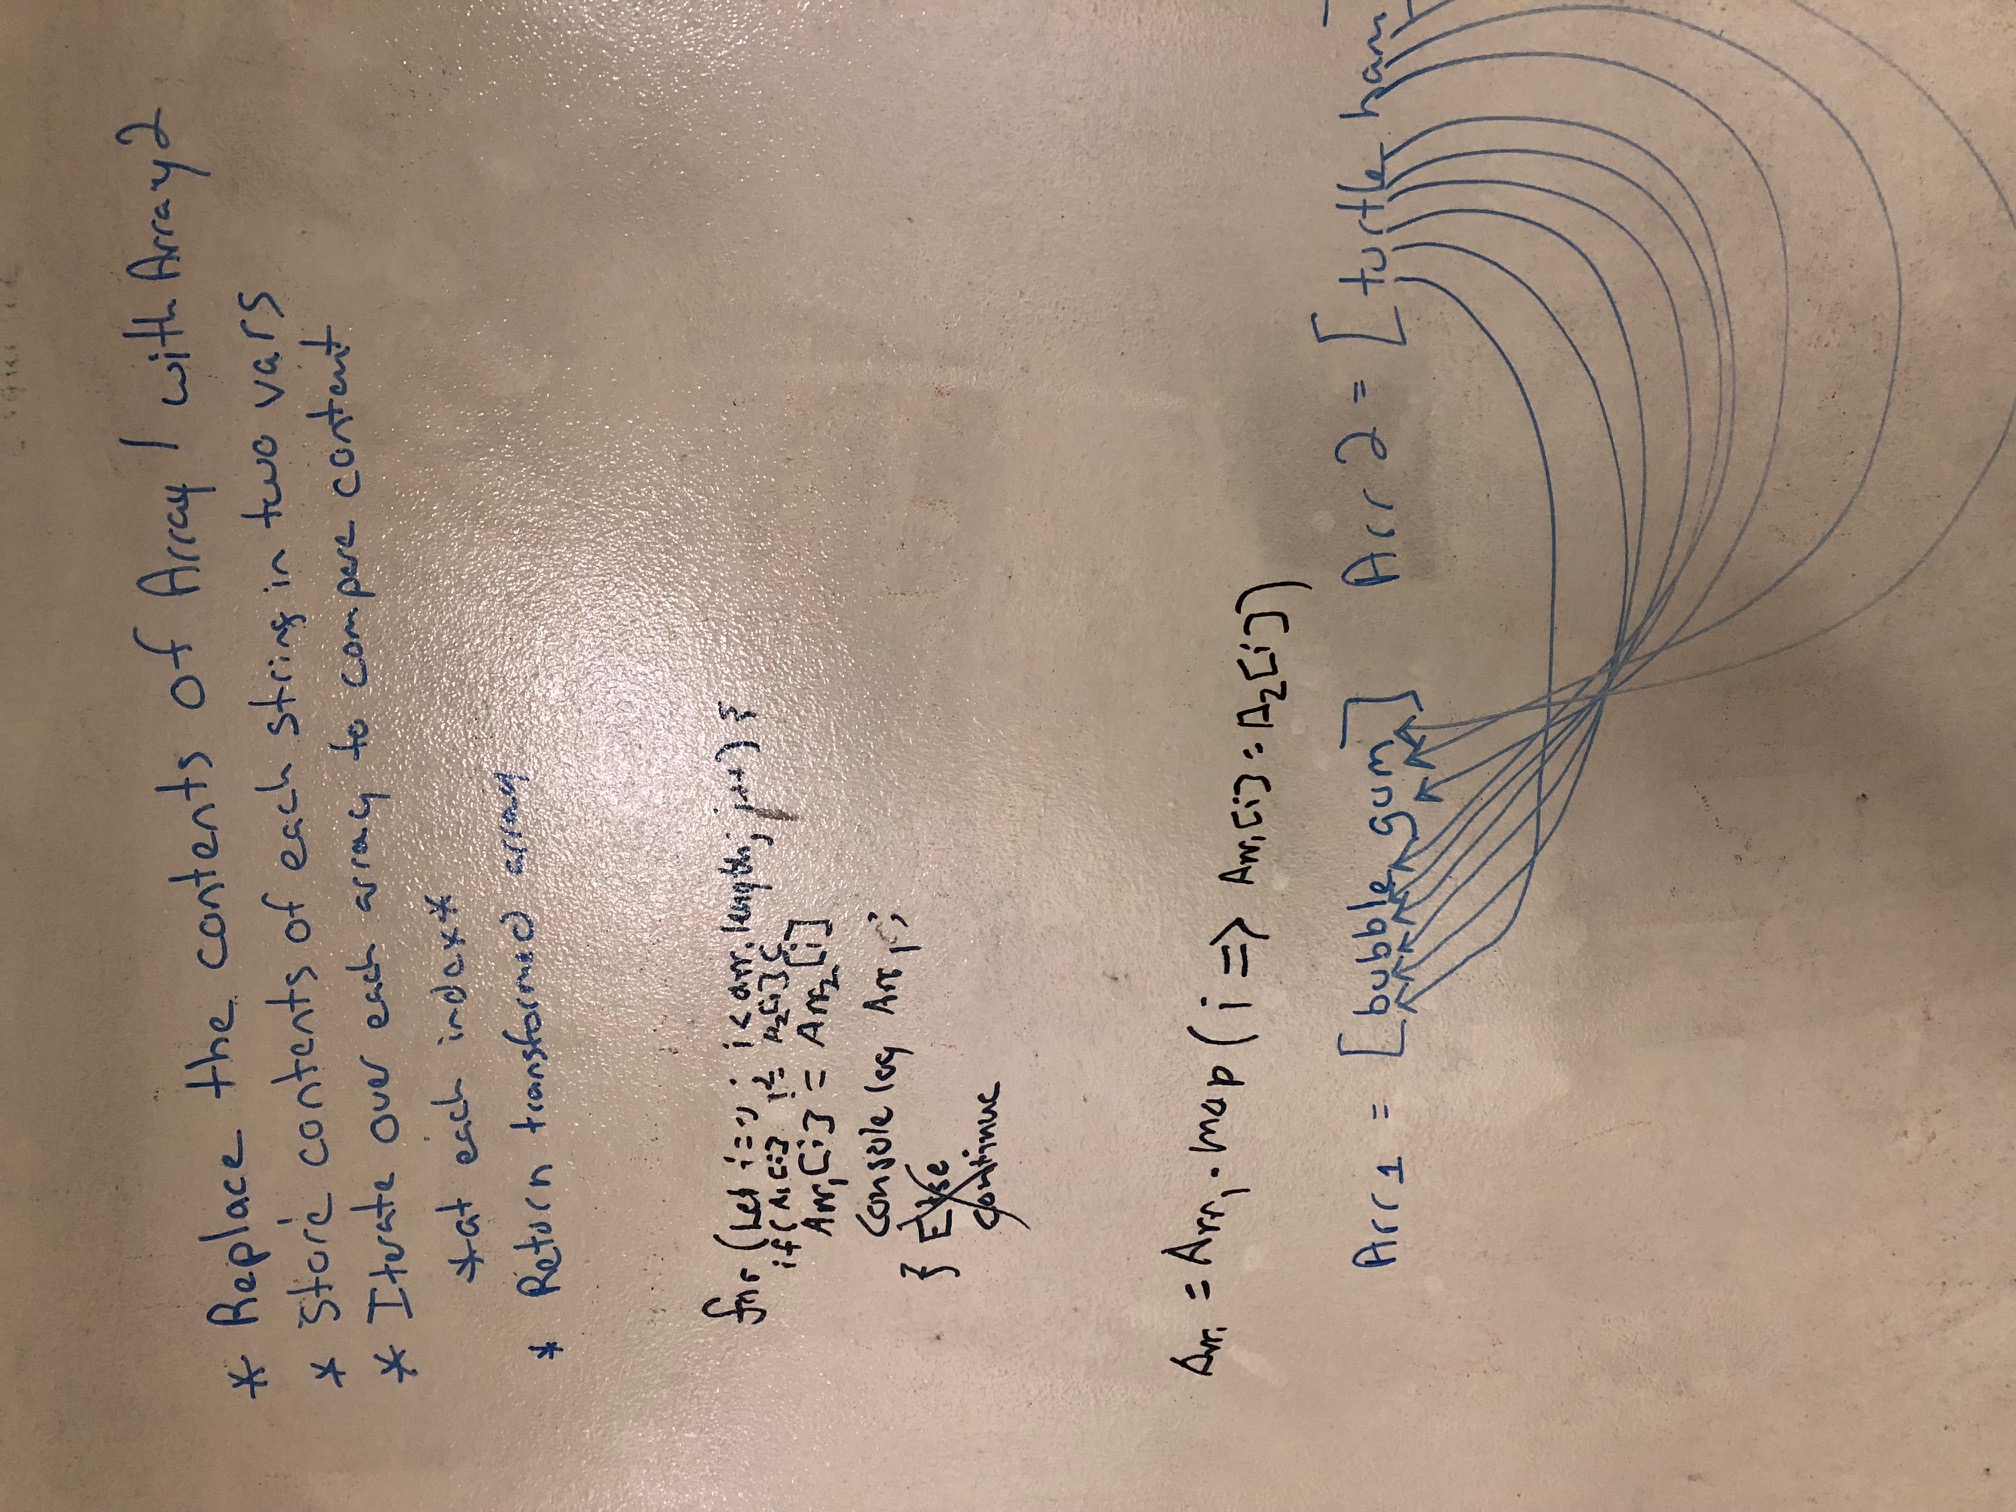 * Replace the contents of Array 1 with Array 2
* Store contents of each string in two vars
* Iterate over each array to compare content
*at each index*
* Return transformed array
for (Let i=0; i< arr.length; i++) {
if( A1[i] != A2[i] {
Arr1[i] = Arr2[i]
Console log Arr1;
} Else
continue
Arr1 = Arr1.map(i => Arr1[i] = A2[i])
Arr1 = [bubble gum] Arr2 = [turtle ham]